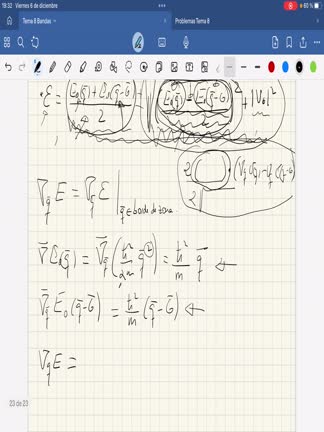 19:32 Viernes 6 de diciembre
60 %
Tema 8 Bandas
Problemas Tema 8
E = (E₀(q̄) + E₀(q̄-G̅))/2 - √( )² + |V_G|²
2 ( ) · (∇_q E₀(q) - ∇_q E₀(q-G))
2 √
∇̅_q̄ E = ∇̅_q̄ E | q̄ ∈ borde de zona
∇̅ E₀(q̄) = ∇̅_q̄ (ħ²/2m q̄²) = ħ²/m q̄ ←
∇̅_q̄ E₀(q̄-G̅) = ħ²/m (q̄-G̅) ←
∇_q̄ E =
23 de 23